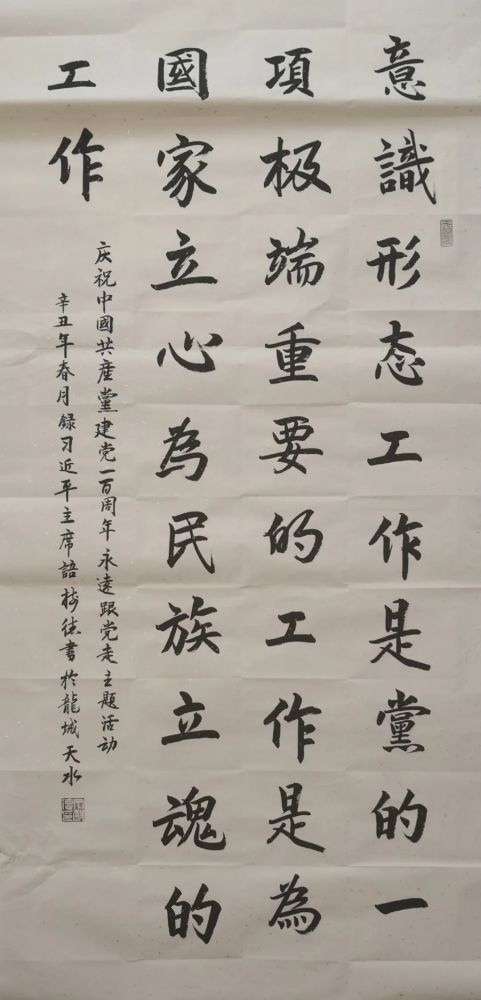 意識形态工作是黨的一
項极端重要的工作是為
國家立心為民族立魂的
工作
庆祝中國共産黨建党一百周年永遠跟党走主题活动
辛丑年春月録习近平主席語树德書於龍城天水